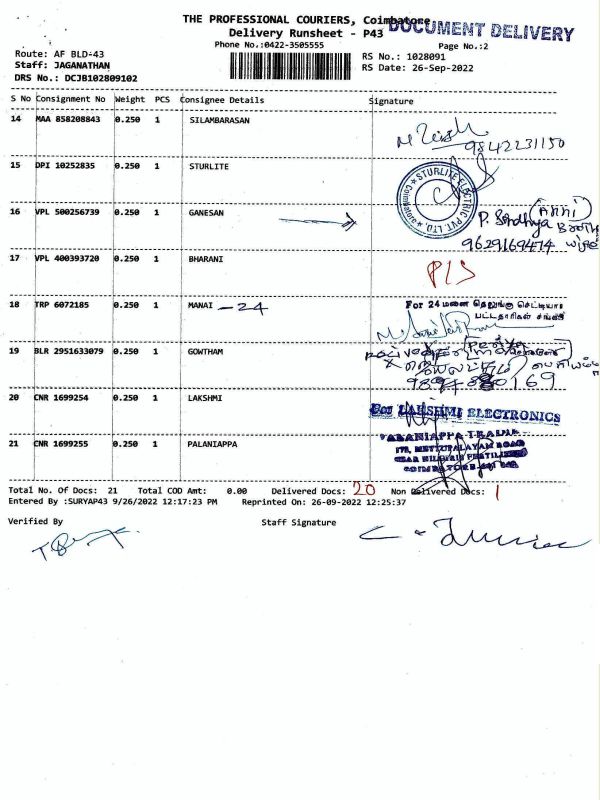 THE PROFESSIONAL COURIERS, Coimbatore
DOCUMENT DELIVERY
Delivery Runsheet - P43
Phone No.:0422-3505555
Page No.:2
Route: AF BLD-43
RS No.: 1028091
Staff: JAGANATHAN
RS Date: 26-Sep-2022
DRS No.: DCJB102809102
S No Consignment No Weight PCS Consignee Details Signature
14 MAA 858208843 0.250 1 SILAMBARASAN
9842231150
15 DPI 10252835 0.250 1 STURLITE
STURLITE ELECTRIC PVT. LTD. * Coimbatore *
16 VPL 500256739 0.250 1 GANESAN
P. Sandhya
9629169474 wife
17 VPL 400393720 0.250 1 BHARANI
P/S
18 TRP 6072185 0.250 1 MANAI - 24
For 24 மனை தெலுங்கு செட்டியார்
பட்டதாரிகள் சங்கம்
19 BLR 2951633079 0.250 1 GOWTHAM
20 CNR 1699254 0.250 1 LAKSHMI
For LAKSHMI ELECTRONICS
21 CNR 1699255 0.250 1 PALANIAPPA
PALANIAPPA TRADE
175, METTUPALAYAM ROAD
NEAR NILGIRIS FERTILIZER
COIMBATORE
Total No. Of Docs: 21 Total COD Amt: 0.00 Delivered Docs: 20 Non Delivered Docs: 1
Entered By :SURYAP43 9/26/2022 12:17:23 PM Reprinted On: 26-09-2022 12:25:37
Verified By Staff Signature